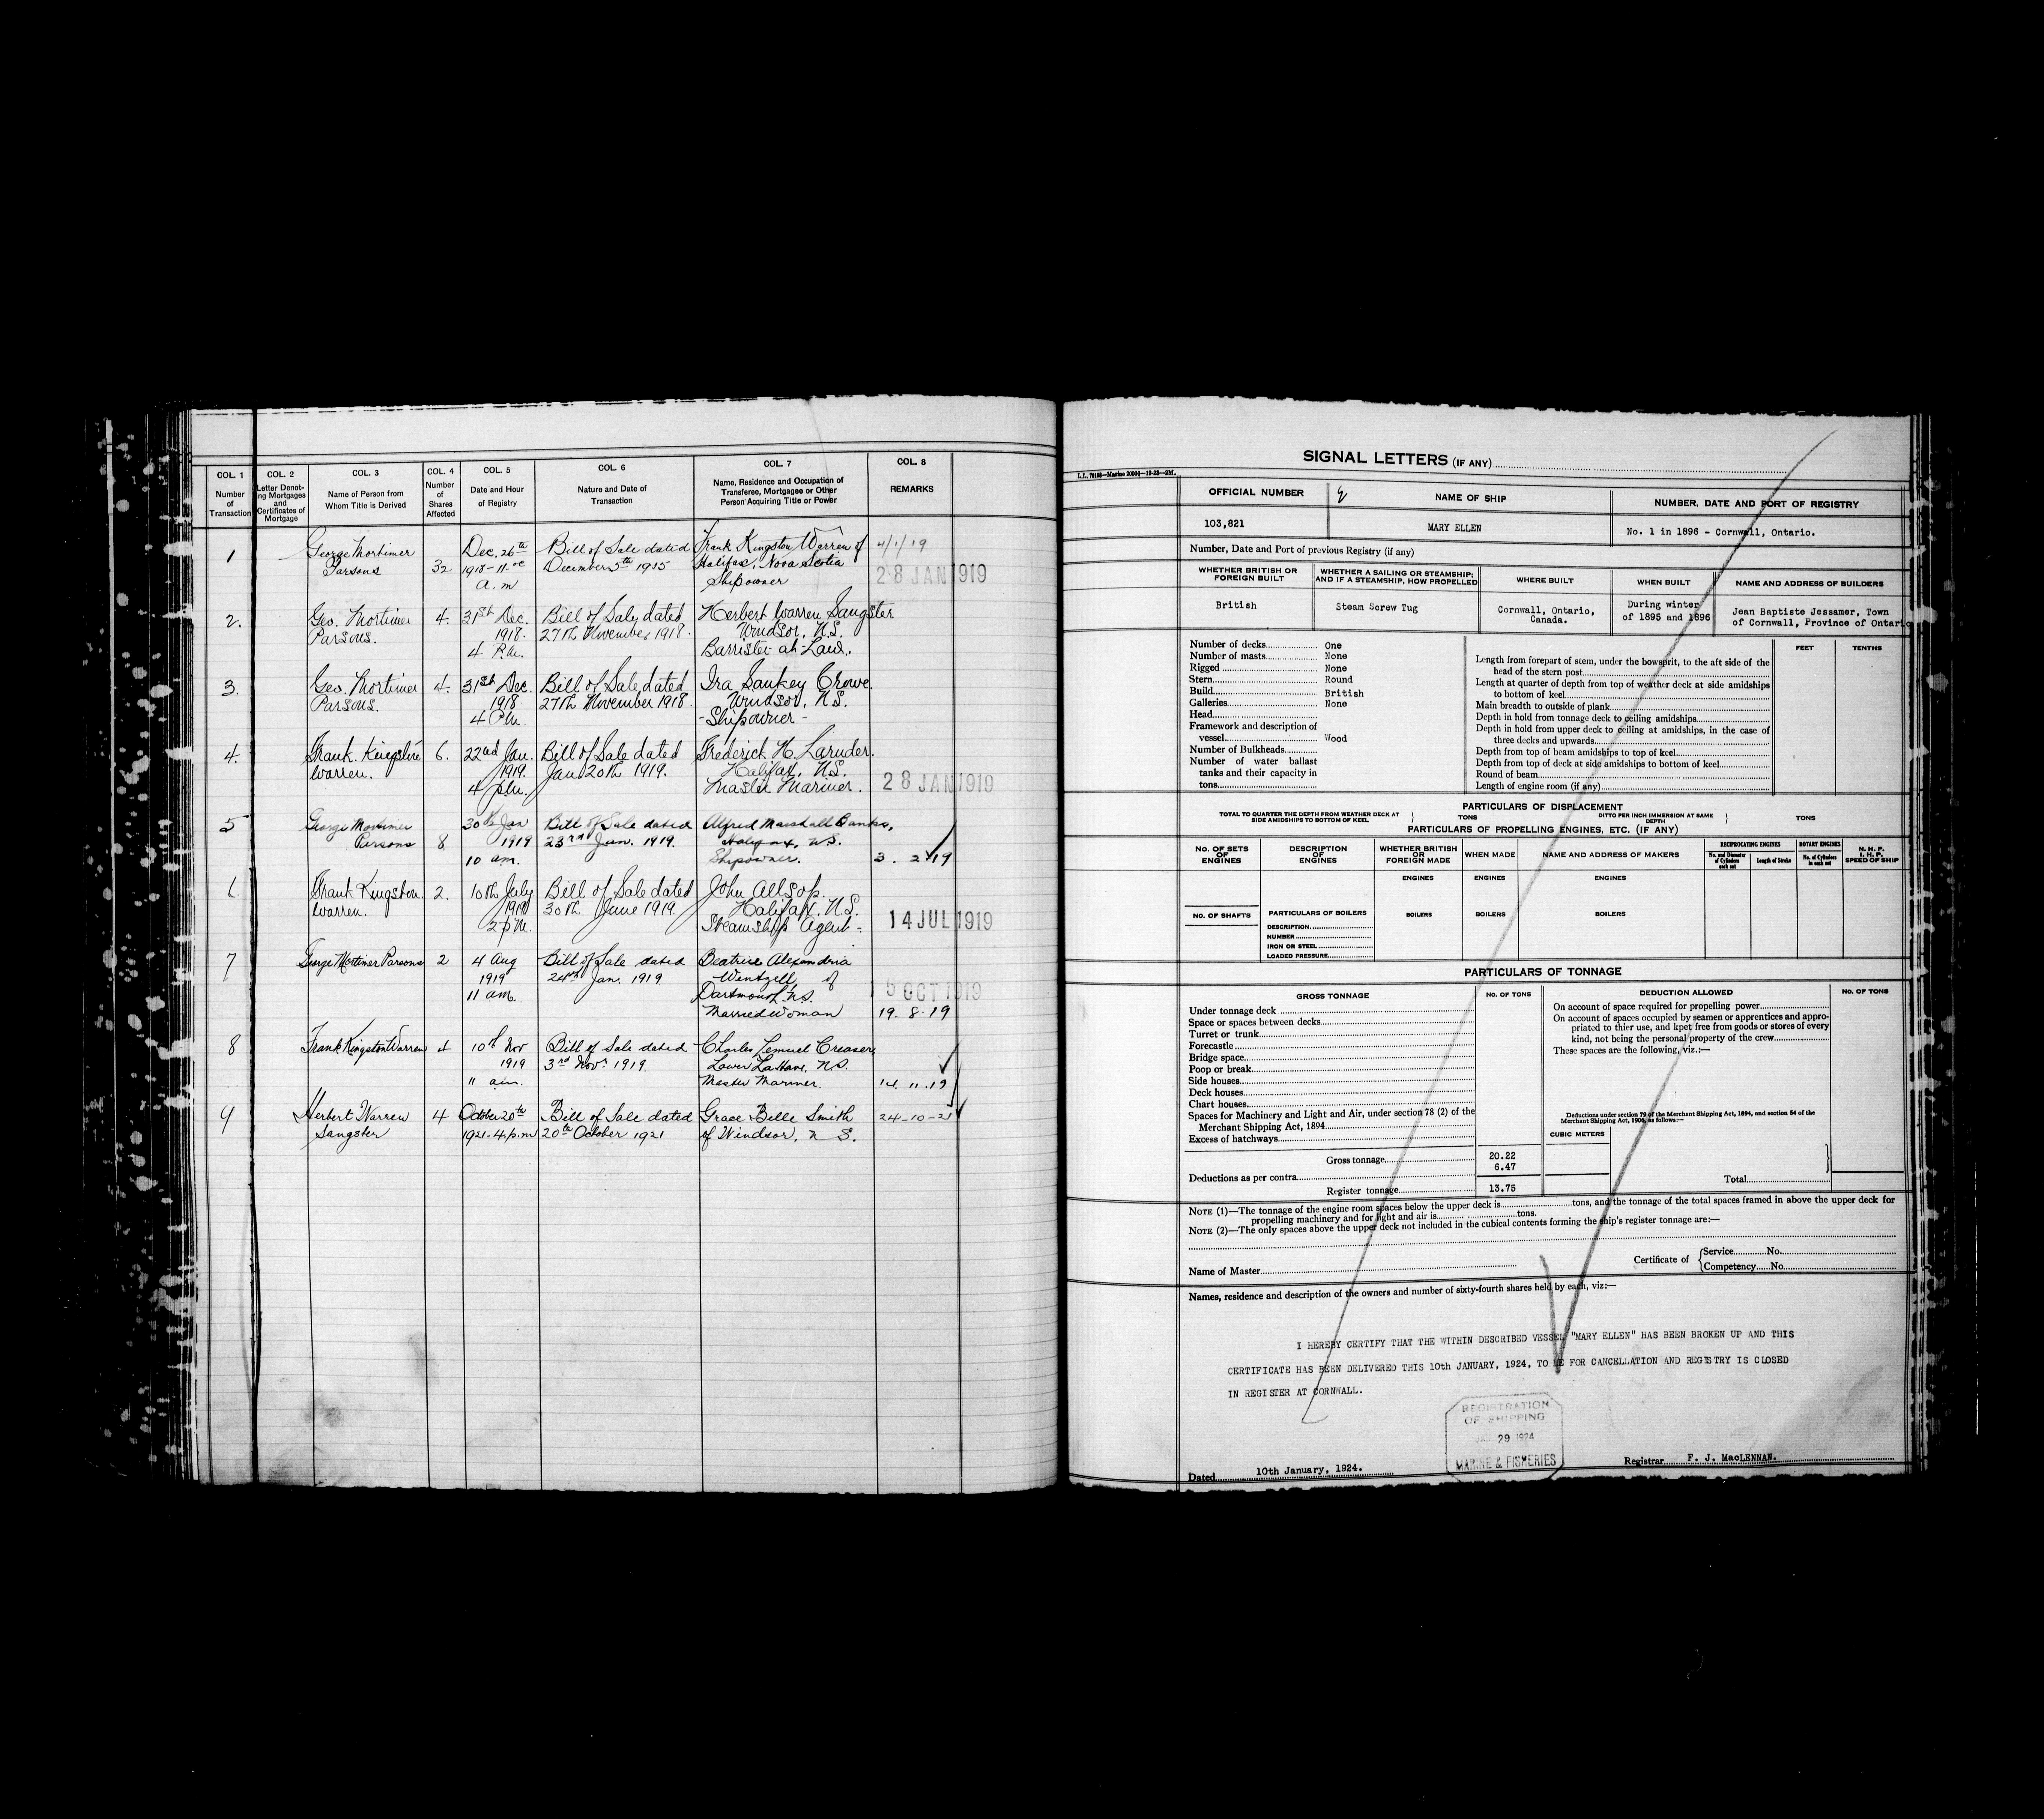 COL. 1
Number
of
Transaction
COL. 2
Letter Denot-
ing Mortgages
and
Certificates of
Mortgage
COL. 3
Name of Person from
Whom Title is Derived
COL. 4
Number
of
Shares
Affected
COL. 5
Date and Hour
of Registry
COL. 6
Nature and Date of
Transaction
COL. 7
Name, Residence and Occupation of
Transferee, Mortgagee or Other
Person Acquiring Title or Power
COL. 8
REMARKS
1
George Mortimer
Parsons
32
Dec. 26th
1918 - 11.00
a.m
Bill of Sale dated
December 5th 1915
Frank Kingston Warren of
Halifax, Nova Scotia
Shipowner
4/1/19
28 JAN 1919
2.
Geo. Mortimer
Parsons.
4.
31st Dec.
1918.
4 P.M.
Bill of Sale, dated
27th November 1918.
Herbert Warren Sangster
Windsor, N.S.
Barrister at Law.
3.
Geo. Mortimer
Parsons.
4.
31st Dec.
1918
4 P.M.
Bill of Sale, dated
27th November 1918
Ira Sankey Crowe.
Windsor, N.S.
- Shipowner -
4.
Frank. Kingston
Warren.
6.
22nd Jan.
1919.
4 p.m.
Bill of Sale dated
Jan 20th 1919.
Frederick H. Laruder.
Halifax, N.S.
Master Mariner.
28 JAN 1919
5
George Mortimer
Parsons
8
30th Jan
1919
10 am.
Bill of Sale dated
23rd Jan. 1919.
Alfred Marshall Banks,
Halifax, N.S.
Shipowner.
3. 2 19
Frank Kingston
Warren.
2.
10th July
1919
2 p.m.
Bill of Sale dated
30th June 1919.
John Allsop.
Halifax, N.S.
Steamship Agent -
14 JUL 1919
7
George Mortimer Parsons
2
4 Aug
1919
11 am.
Bill of Sale dated
24th Jan. 1919
Beatrice Alexandria
Wentzell of
Dartmouth N.S.
Married Woman
15 OCT 1919
19. 8. 19
8
Frank Kingston Warren
4
10th Nov
1919
11 a.m.
Bill of Sale dated
3rd Nov. 1919.
Charles Lemuel Creaser,
Lower LaHave, N.S.
Master Mariner.
14. 11. 19
9
Herbert Warren
Sangster
4
October 20th
1921 - 4. p.m
Bill of Sale dated
20th October 1921
Grace Belle Smith
of Windsor, N S.
24-10-21
SIGNAL LETTERS (IF ANY)
OFFICIAL NUMBER
NAME OF SHIP
NUMBER, DATE AND PORT OF REGISTRY
103,821
MARY ELLEN
No. 1 in 1896 - Cornwall, Ontario.
Number, Date and Port of previous Registry (if any)
WHETHER BRITISH OR
FOREIGN BUILT
WHETHER A SAILING OR STEAMSHIP;
AND IF A STEAMSHIP, HOW PROPELLED
WHERE BUILT
WHEN BUILT
NAME AND ADDRESS OF BUILDERS
British
Steam Screw Tug
Cornwall, Ontario,
Canada.
During winter
of 1895 and 1896
Jean Baptiste Jessamer, Town
of Cornwall, Province of Ontario
Number of decks One
Number of masts None
Rigged None
Stern Round
Build British
Galleries None
Head
Framework and description of
vessel Wood
Number of Bulkheads
Number of water ballast
tanks and their capacity in
tons
FEET
TENTHS
Length from forepart of stem, under the bowsprit, to the aft side of the
head of the stern post
Length at quarter of depth from top of weather deck at side amidships
to bottom of keel
Main breadth to outside of plank
Depth in hold from tonnage deck to ceiling amidships
Depth in hold from upper deck to ceiling at amidships, in the case of
three decks and upwards
Depth from top of beam amidships to top of keel
Depth from top of deck at side amidships to bottom of keel
Round of beam
Length of engine room (if any)
PARTICULARS OF DISPLACEMENT
TOTAL TO QUARTER THE DEPTH FROM WEATHER DECK AT
SIDE AMIDSHIPS TO BOTTOM OF KEEL
TONS
DITTO PER INCH IMMERSION AT SAME
DEPTH
TONS
PARTICULARS OF PROPELLING ENGINES, ETC. (IF ANY)
NO. OF SETS
OF
ENGINES
DESCRIPTION
OF
ENGINES
WHETHER BRITISH
OR
FOREIGN MADE
WHEN MADE
NAME AND ADDRESS OF MAKERS
RECIPROCATING ENGINES
No. and Diameter
of Cylinders
in each set
Length of Stroke
ROTARY ENGINES
No. of Cylinders
in each set
N. H. P.
I. H. P.
SPEED OF SHIP
ENGINES
ENGINES
ENGINES
NO. OF SHAFTS
PARTICULARS OF BOILERS
BOILERS
BOILERS
BOILERS
DESCRIPTION
NUMBER
IRON OR STEEL
LOADED PRESSURE
PARTICULARS OF TONNAGE
GROSS TONNAGE
NO. OF TONS
DEDUCTION ALLOWED
NO. OF TONS
Under tonnage deck
Space or spaces between decks
Turret or trunk
Forecastle
Bridge space
Poop or break
Side houses
Deck houses
Chart houses
Spaces for Machinery and Light and Air, under section 78 (2) of the
Merchant Shipping Act, 1894
Excess of hatchways
Gross tonnage 20.22
Deductions as per contra 6.47
Register tonnage 13.75
On account of space required for propelling power
On account of spaces occupied by seamen or apprentices and appro-
priated to thier use, and kpet free from goods or stores of every
kind, not being the personal property of the crew
These spaces are the following, viz.:—
Deductions under section 79 of the Merchant Shipping Act, 1894, and section 54 of the
Merchant Shipping Act, 1906, as follows:—
CUBIC METERS
Total
NOTE (1)—The tonnage of the engine room spaces below the upper deck is tons, and the tonnage of the total spaces framed in above the upper deck for
propelling machinery and for light and air is tons.
NOTE (2)—The only spaces above the upper deck not included in the cubical contents forming the ship's register tonnage are:—
Name of Master
Certificate of
Service No.
Competency No.
Names, residence and description of the owners and number of sixty-fourth shares held by each, viz:—
I HEREBY CERTIFY THAT THE WITHIN DESCRIBED VESSEL "MARY ELLEN" HAS BEEN BROKEN UP AND THIS
CERTIFICATE HAS BEEN DELIVERED THIS 10th JANUARY, 1924, TO ME FOR CANCELLATION AND REGISTRY IS CLOSED
IN REGISTER AT CORNWALL.
REGISTRATION
OF SHIPPING
JAN 29 1924
MARINE & FISHERIES
Dated 10th January, 1924.
Registrar F. J. MacLENNAN.